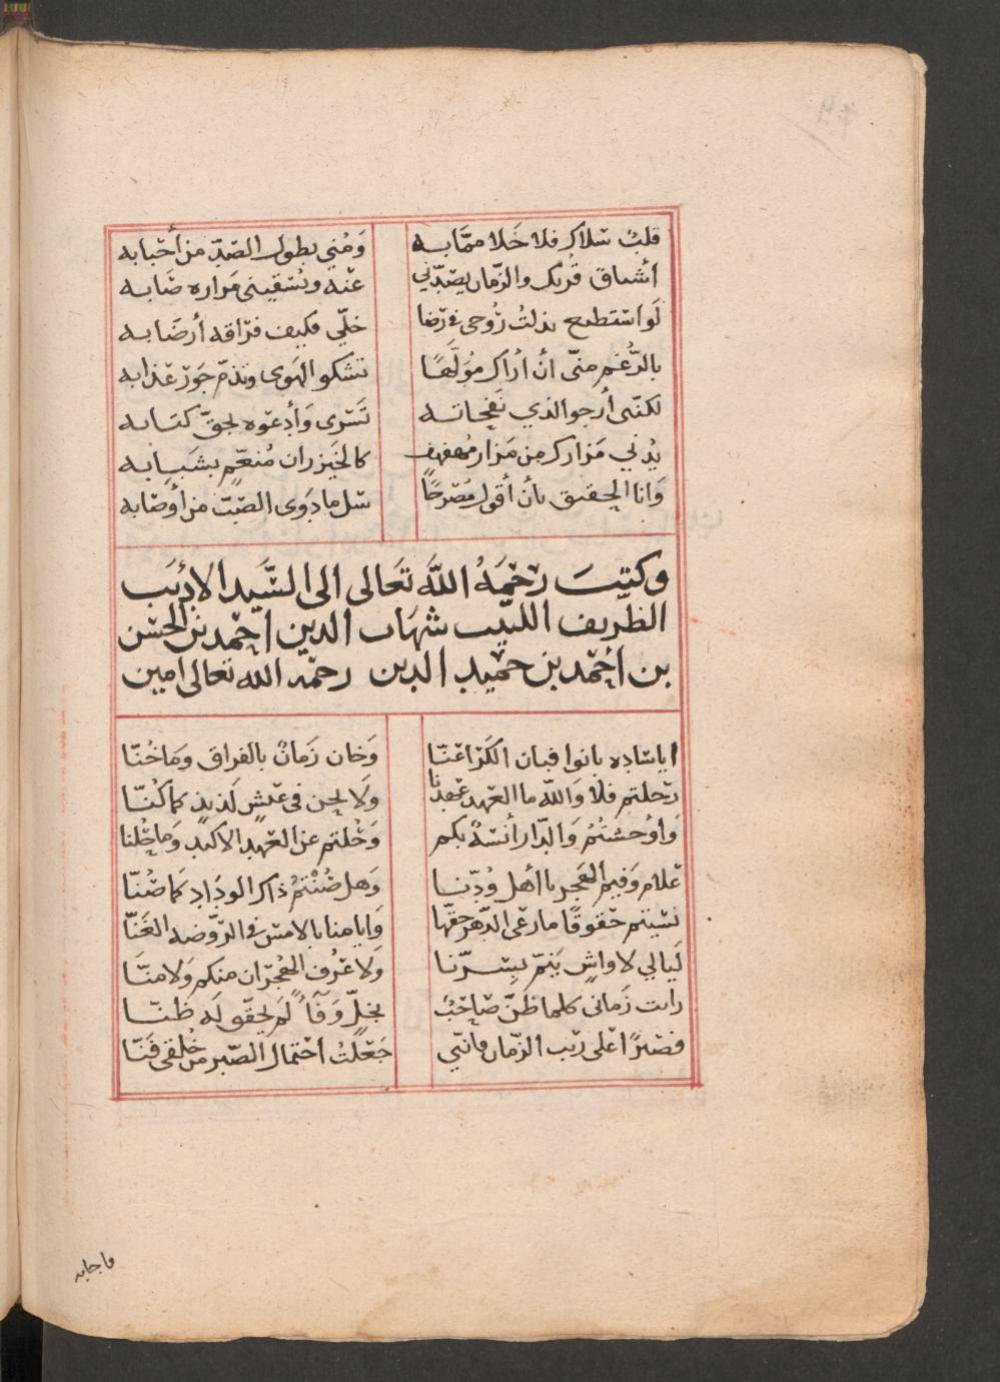 قلبٌ سلاك فلا خلا مما به وَمُني بطول الصّدّ من أحبابه
أشتاق قُربك والزّمان يصدّني عنه ويُسقيني مَراره صَابه
لَو استطيع بذلتُ رُوحي في رضا خلّي فكيف فراقه أرضَا به
بالرّغم منّي أنْ أراك مُوَلَّعًا تشكو الهوى وتذمّ جَوْر عَذابه
لكنّني أرجو الذي نفحاته تَسْرى وَأدعوه بحقّ كتابه
يُدني مَزارك من مَزار مُهفهف كالخَيزران مُنعّمٍ بشبابه
وَانا الحقيق بأن أقول مُصرحًا سَل ما دَوَى الصّبّ من أوصَابه
وكتب رَحمَهُ اللَّه تَعالى الى السَّيد الاديب
الظريف اللبيب شهاب الدين احمد بن الحسن
بن احمد بن حميد الدين رحمه الله تعالى امين
اياسَاده بانوا فبان الكرَا عَنّا وَخان زَمانٌ بالفراق وَمَا خُنّا
رحلتم فلا وَاللّه ما العهد عهدنا وَلا نحن في عَيشٍ لَذيذٍ كما كُنّا
وَأوْحشتُمُ وَالدّار أنسَةٌ بكم وَحُلتم عن العَهد الاكيد وَما حُلنا
عَلام وَفيم الهجر يا أهل وُدّنا وَهل صُنْتمُ ذاك الودَاد كما صُنّا
نسيتم حقوقًا ما رعَى الدّهر حقّها وَايامنا بالامس في الرّوضه الغَنّا
لَيالي لا واشٍ يَنمّ بِسرّنا وَلا عُرف الهُجران منكم وَلا منّا
رات زَماني كلما ظنّ صَاحبٌ بخلّ وَفَآءً لَم يحقق له ظنّا
فصَبرًا على رَيب الزّمان فانّني جَعَلتُ احتمال الصّبر من خُلقي فَنّا
فاجابه